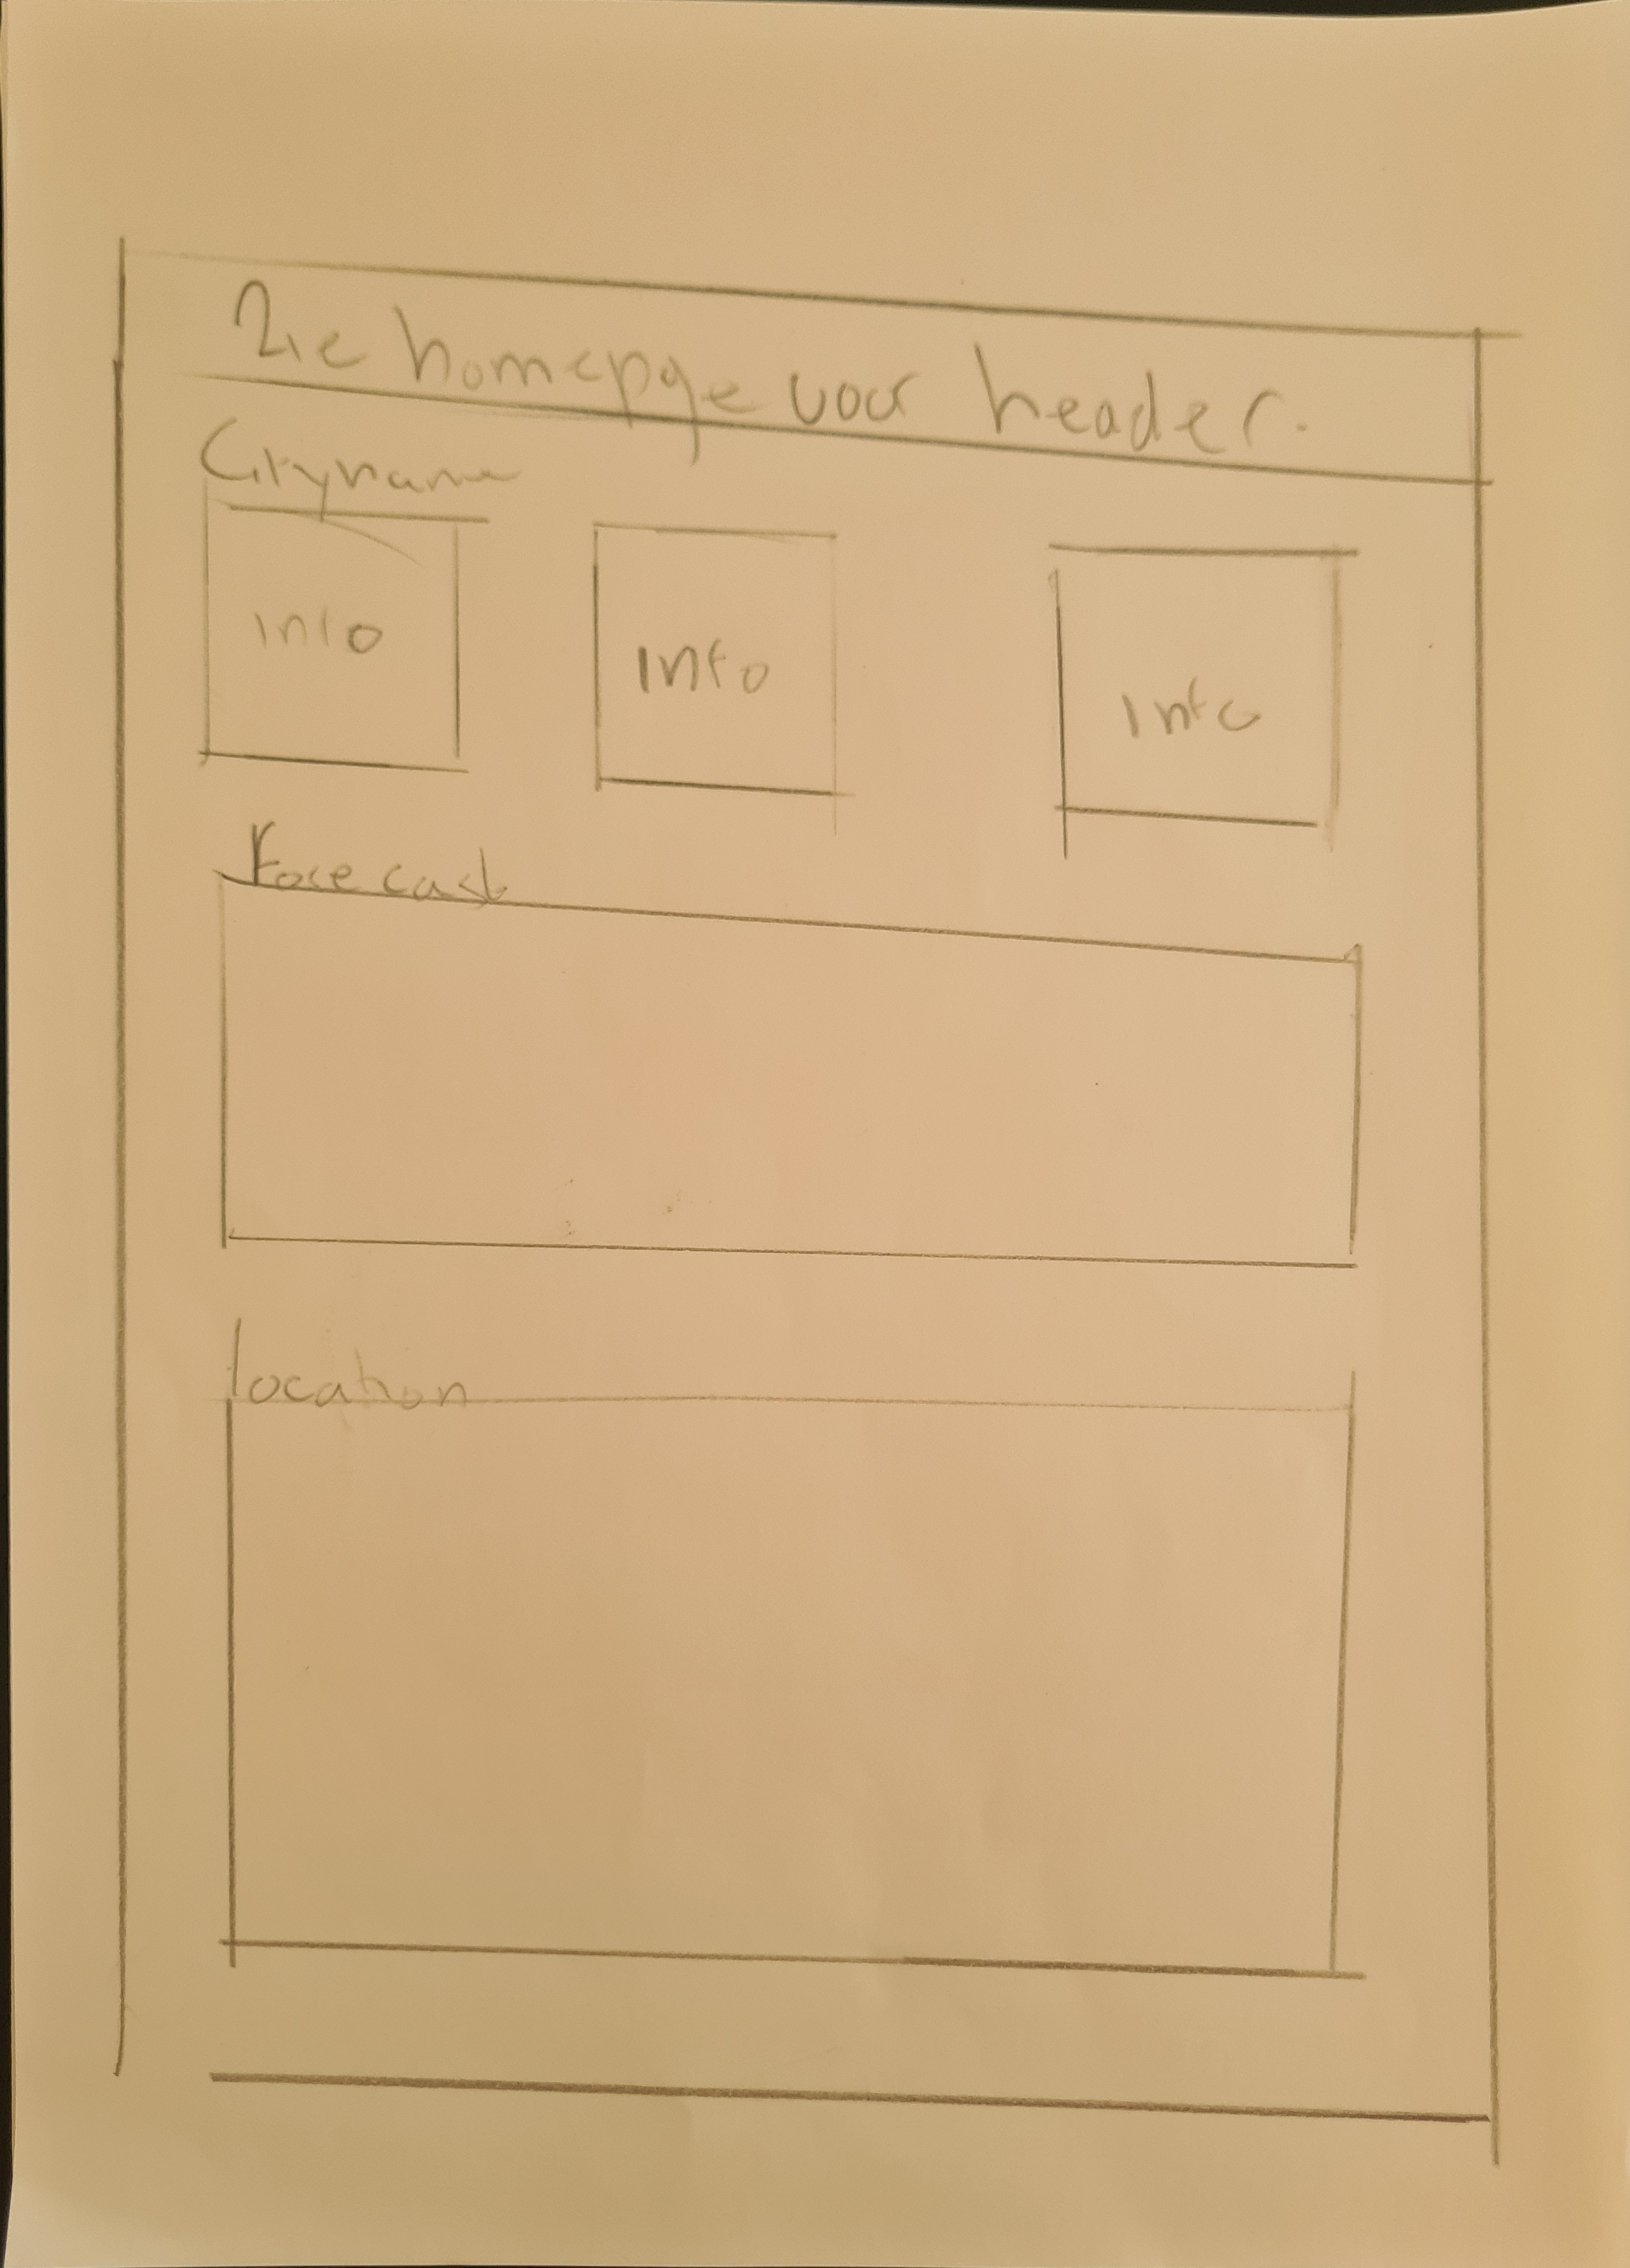 Zie homepge voor header.
Cityname
Info
Info
Info
Forecast
location